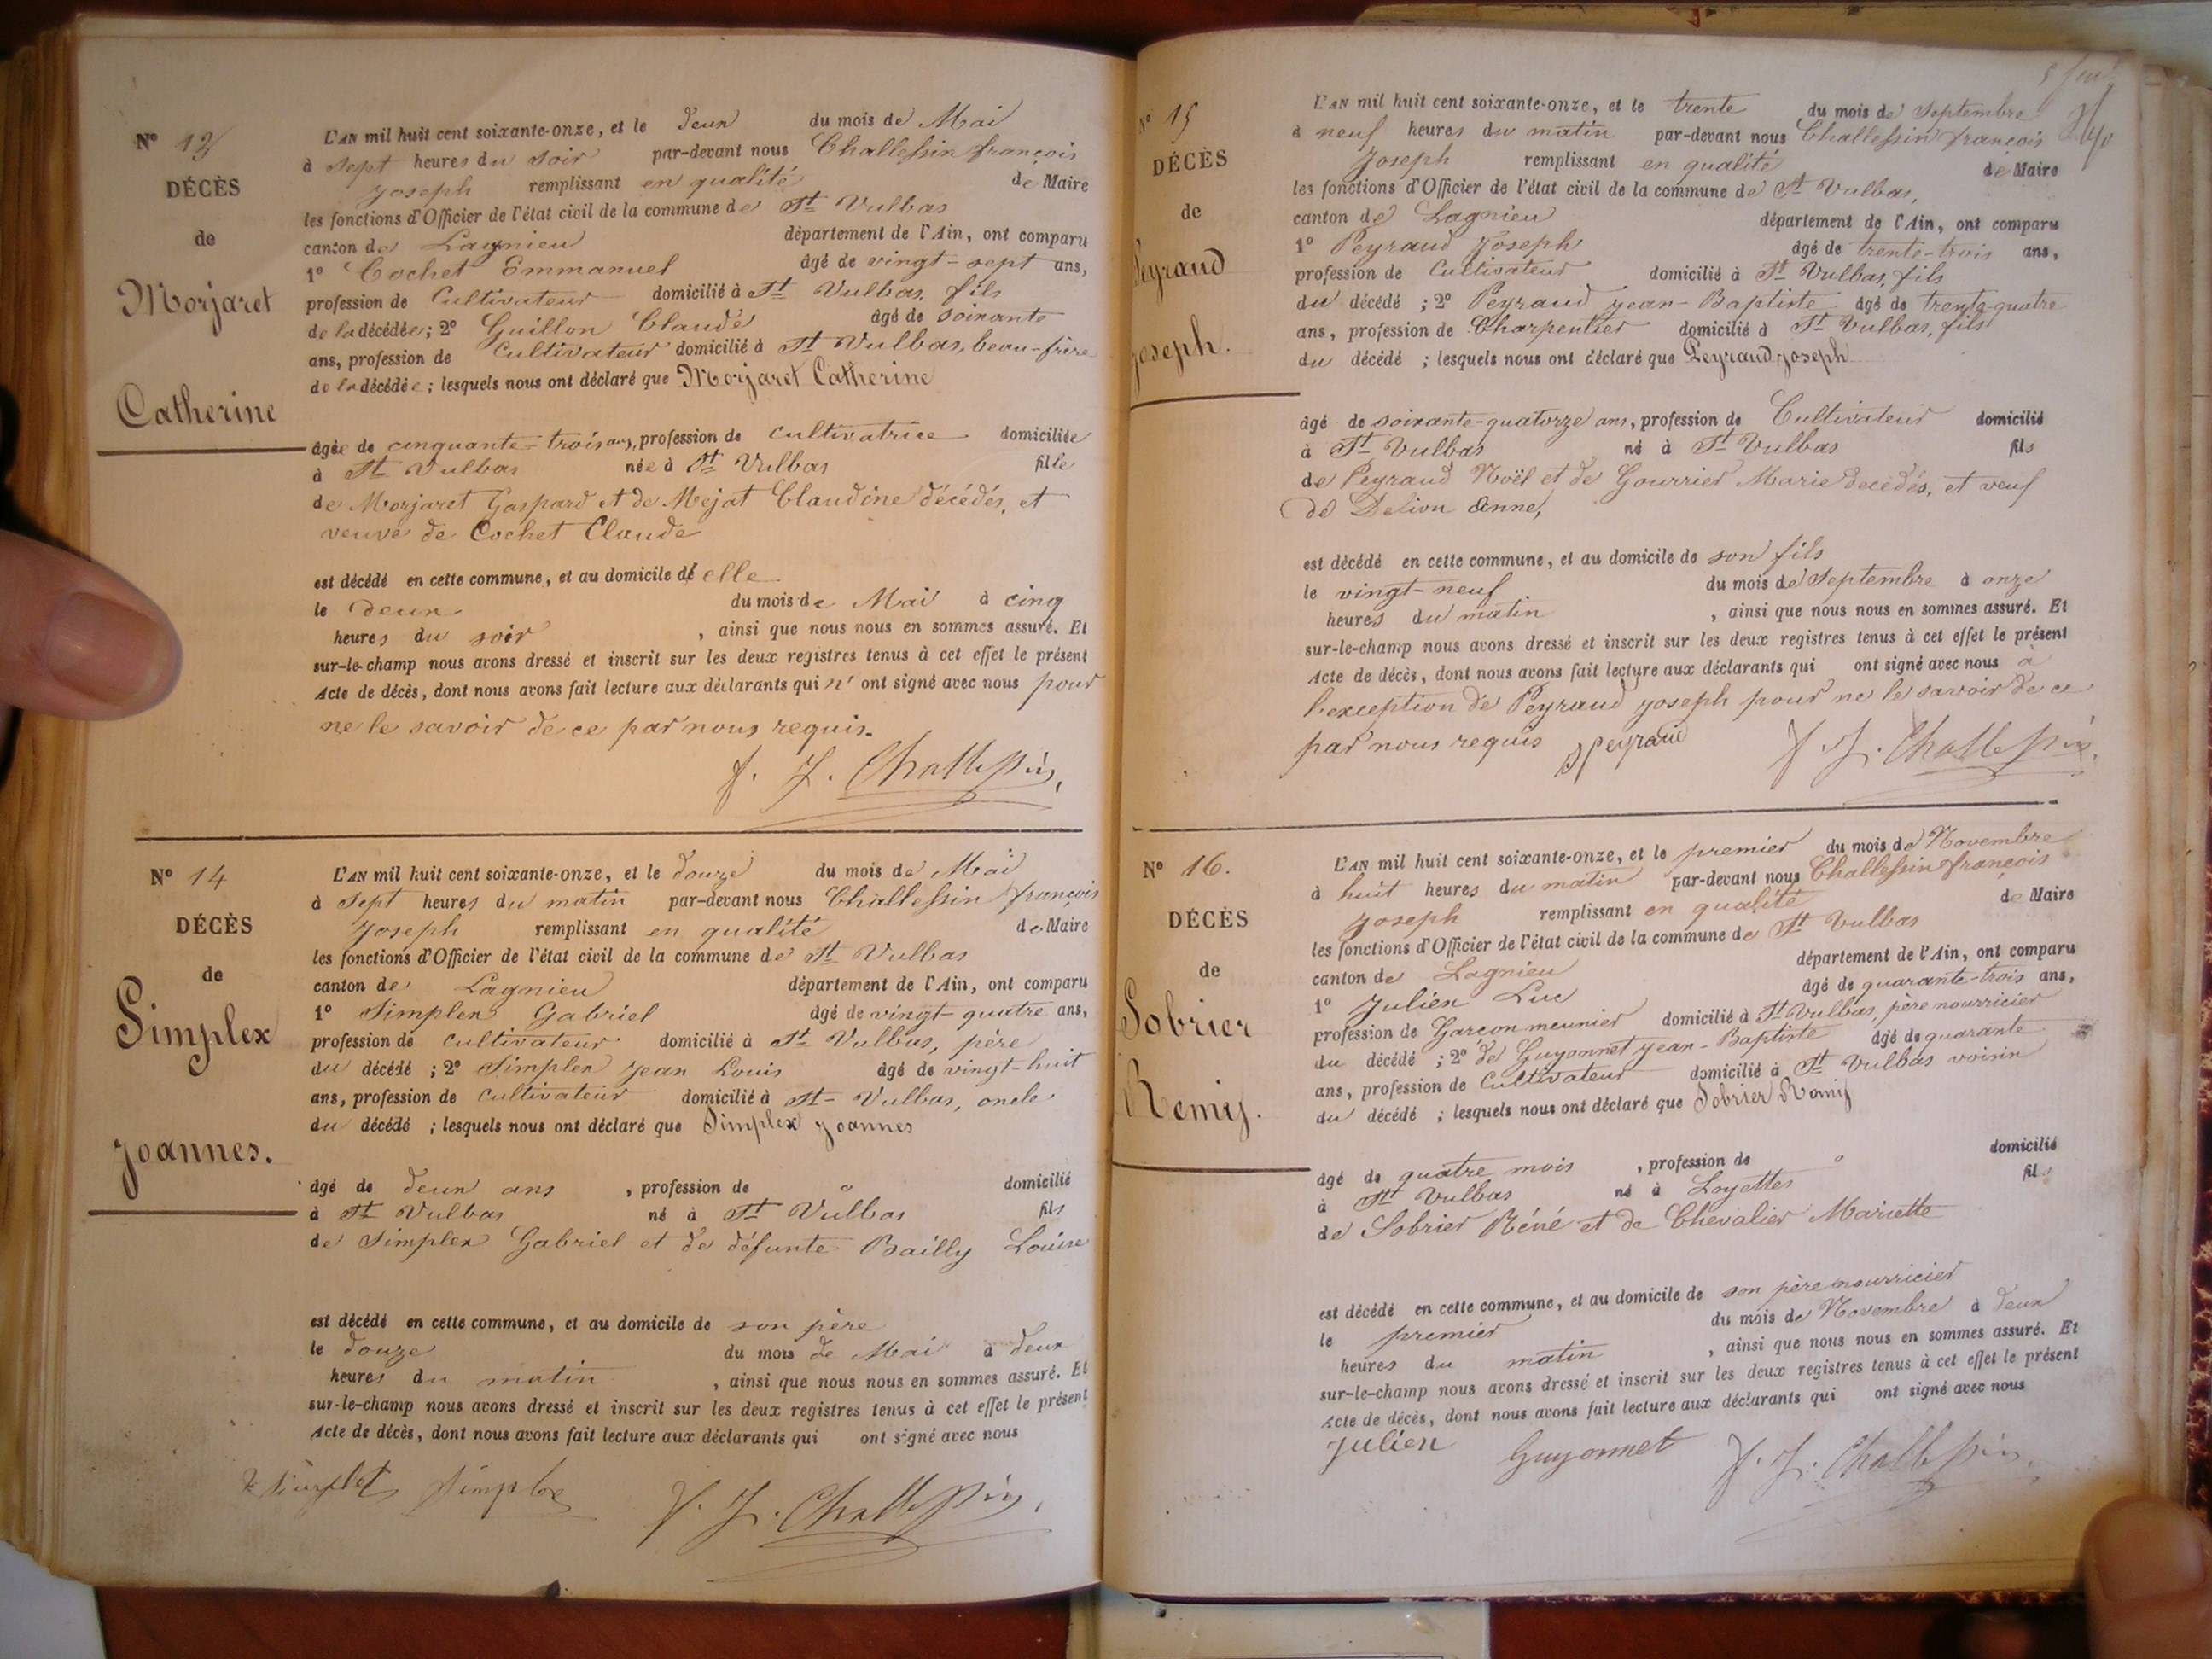 N° 13
DÉCÈS
de
Morjaret
Catherine
L'AN mil huit cent soixante-onze, et le deux du mois de Mai
à sept heures du soir par-devant nous Challessin françois
Joseph remplissant en qualité de Maire
les fonctions d'Officier de l'état civil de la commune de St Vulbas
canton de Lagnieu département de l'Ain, ont comparu
1° Cochet Emmanuel âgé de vingt-sept ans,
profession de Cultivateur domicilié à St Vulbas, fils
de la décédée; 2° Guillon Claude âgé de soixante
ans, profession de Cultivateur domicilié à St Vulbas, beau-frère
de la décédée; lesquels nous ont déclaré que Morjaret Catherine
âgée de cinquante-trois ans, profession de cultivatrice domiciliée
à St Vulbas née à St Vulbas fille
de Morjaret Gaspard et de Mejat Claudine décédés, et
veuve de Cochet Claude
est décédé en cette commune, et au domicile d'elle
le deux du mois de Mai à cinq
heures du soir, ainsi que nous nous en sommes assuré. Et
sur-le-champ nous avons dressé et inscrit sur les deux registres tenus à cet effet le présent
Acte de décès, dont nous avons fait lecture aux déclarants qui n'ont signé avec nous pour
ne le savoir de ce par nous requis.
f. J. Challessin,
N° 14
DÉCÈS
de
Simplex
Joannes.
L'AN mil huit cent soixante-onze, et le douze du mois de Mai
à sept heures du matin par-devant nous Challessin françois
Joseph remplissant en qualité de Maire
les fonctions d'Officier de l'état civil de la commune de St Vulbas
canton de Lagnieu département de l'Ain, ont comparu
1° Simplex Gabriel âgé de vingt-quatre ans,
profession de cultivateur domicilié à St Vulbas, père
du décédé; 2° Simplex Jean Louis âgé de vingt-huit
ans, profession de cultivateur domicilié à St Vulbas, oncle
du décédé; lesquels nous ont déclaré que Simplex Joannes
âgé de deux ans, profession de domicilié
à St Vulbas né à St Vulbas fils
de Simplex Gabriel et de défunte Bailly Louise
est décédé en cette commune, et au domicile de son père
le douze du mois de Mai à deux
heures du matin, ainsi que nous nous en sommes assuré. Et
sur-le-champ nous avons dressé et inscrit sur les deux registres tenus à cet effet le présent
Acte de décès, dont nous avons fait lecture aux déclarants qui ont signé avec nous
Simplex f. J. Challessin,
N° 15
DÉCÈS
de
Peyraud
Joseph.
L'AN mil huit cent soixante-onze, et le trente du mois de Septembre
à neuf heures du matin par-devant nous Challessin françois
Joseph remplissant en qualité de Maire
les fonctions d'Officier de l'état civil de la commune de St Vulbas,
canton de Lagnieu département de l'Ain, ont comparu
1° Peyraud Joseph âgé de trente-trois ans,
profession de Cultivateur domicilié à St Vulbas, fils
du décédé; 2° Peyraud Jean-Baptiste âgé de trente-quatre
ans, profession de Charpentier domicilié à St Vulbas, fils
du décédé; lesquels nous ont déclaré que Peyraud Joseph
âgé de soixante-quatorze ans, profession de Cultivateur domicilié
à St Vulbas né à St Vulbas fils
de Peyraud Noël et de Gourrier Marie décédés, et veuf
de Delion Anne,
est décédé en cette commune, et au domicile de son fils
le vingt-neuf du mois de Septembre à onze
heures du matin, ainsi que nous nous en sommes assuré. Et
sur-le-champ nous avons dressé et inscrit sur les deux registres tenus à cet effet le présent
Acte de décès, dont nous avons fait lecture aux déclarants qui ont signé avec nous à
l'exception de Peyraud Joseph pour ne le savoir de ce
par nous requis Peyraud f. J. Challessin.
N° 16.
DÉCÈS
de
Sobrier
Remy.
L'AN mil huit cent soixante-onze, et le premier du mois de Novembre
à huit heures du matin par-devant nous Challessin françois
Joseph remplissant en qualité de Maire
les fonctions d'Officier de l'état civil de la commune de St Vulbas
canton de Lagnieu département de l'Ain, ont comparu
1° Julien Luc âgé de quarante-trois ans,
profession de Garçon meunier domicilié à St Vulbas, père nourricier
du décédé; 2° de Guyonnet Jean-Baptiste âgé de quarante
ans, profession de Cultivateur domicilié à St Vulbas voisin
du décédé; lesquels nous ont déclaré que Sobrier Remy
âgé de quatre mois, profession de domicilié
à St Vulbas né à Loyettes fils
de Sobrier Réné et de Chevalier Mariette
est décédé en cette commune, et au domicile de son père nourricier
le premier du mois de Novembre à deux
heures du matin, ainsi que nous nous en sommes assuré. Et
sur-le-champ nous avons dressé et inscrit sur les deux registres tenus à cet effet le présent
Acte de décès, dont nous avons fait lecture aux déclarants qui ont signé avec nous
Julien Guyonnet f. J. Challessin.